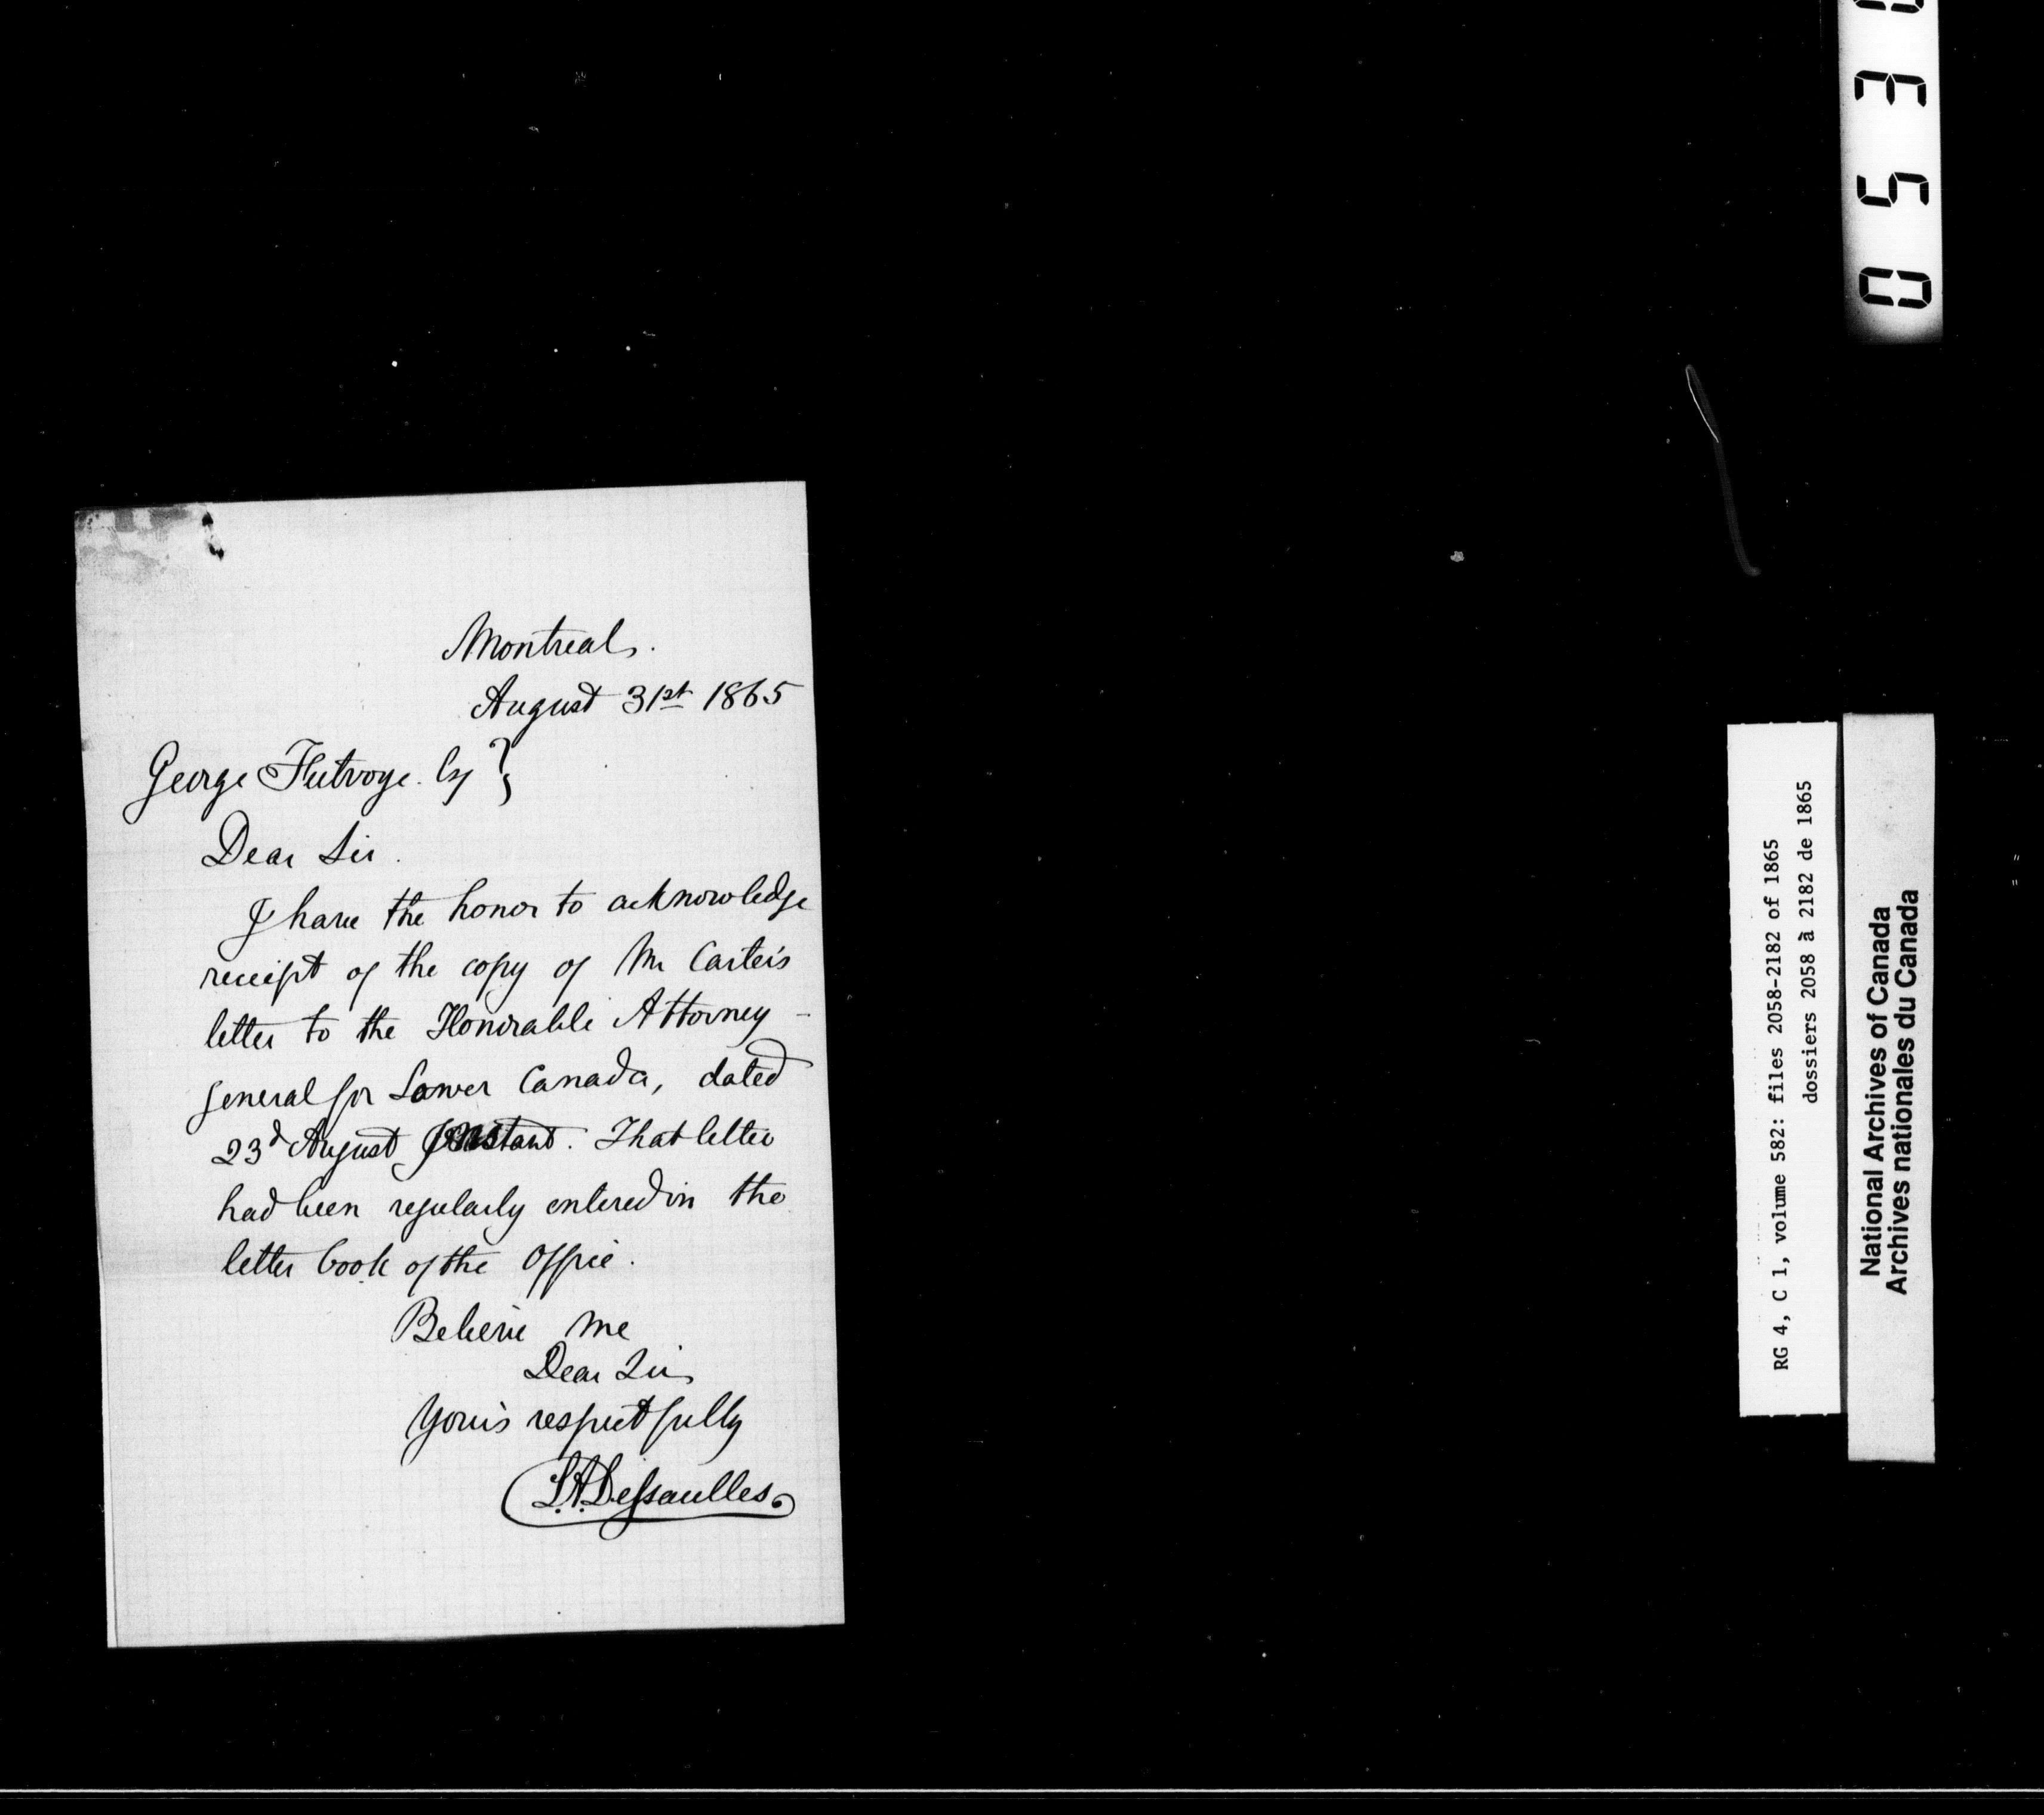 Montreal.
August 31st 1865
George Futvoye. Esq }
Dear Sir.
I have the honor to acknowledge
receipt of the copy of Mr Carter's
letter to the Honorable Attorney -
general for Lower Canada, dated
23d August Instant. That letter
had been regularly entered in the
letter book of the Office.
Believe me
Dear Sir
Your's respectfully
L.A. Dessaulles
0 5 3
RG 4, C 1, volume 582: files 2058-2182 of 1865
dossiers 2058 à 2182 de 1865
National Archives of Canada
Archives nationales du Canada